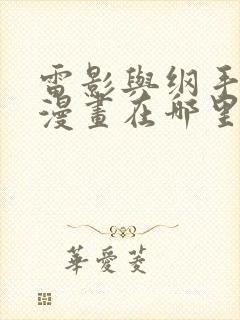 雷影與纲手
漫畫在哪里
華愛菱